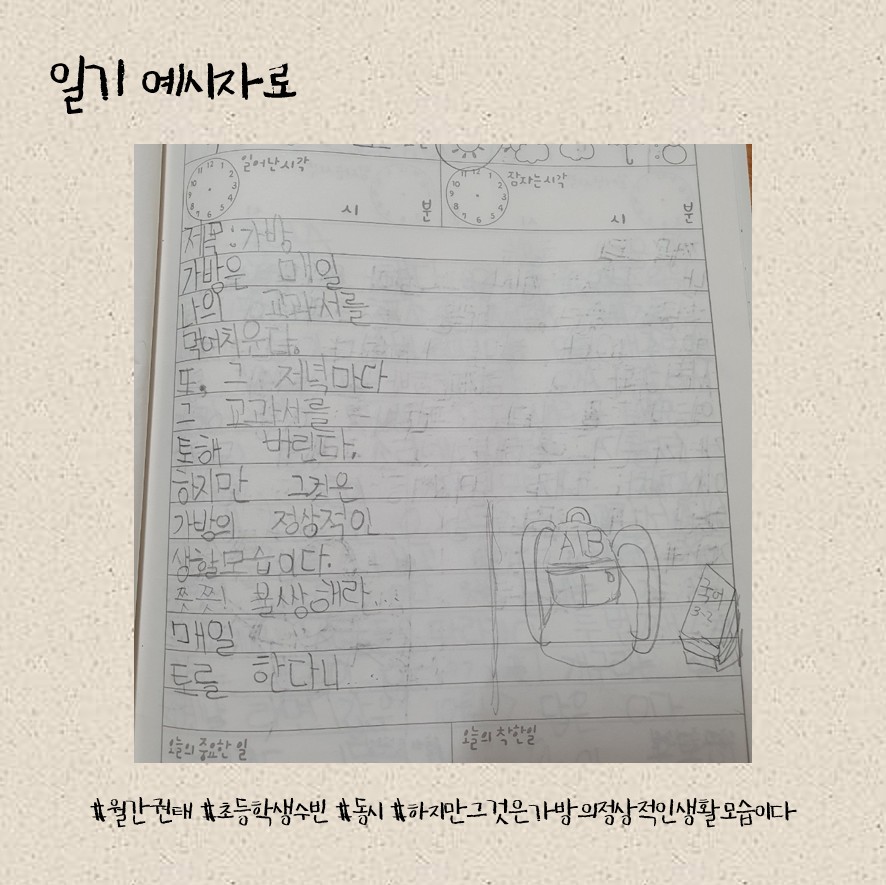 일기 예시자료
일어난시각
잠자는시각
시 분
시 분
제목:가방
가방은 매일
나의 교과서를
먹어치운다.
또, 그 저녁마다
그 교과서를
토해 버린다.
하지만 그것은
가방의 정상적인
생활모습이다.
쯧쯧! 불쌍해라...
매일
토를 한다니...
AB
국어
3-2
오늘의 중요한 일
오늘의 착한일
#월간권태 #초등학생수빈 #동시 #하지만그것은가방의정상적인생활모습이다